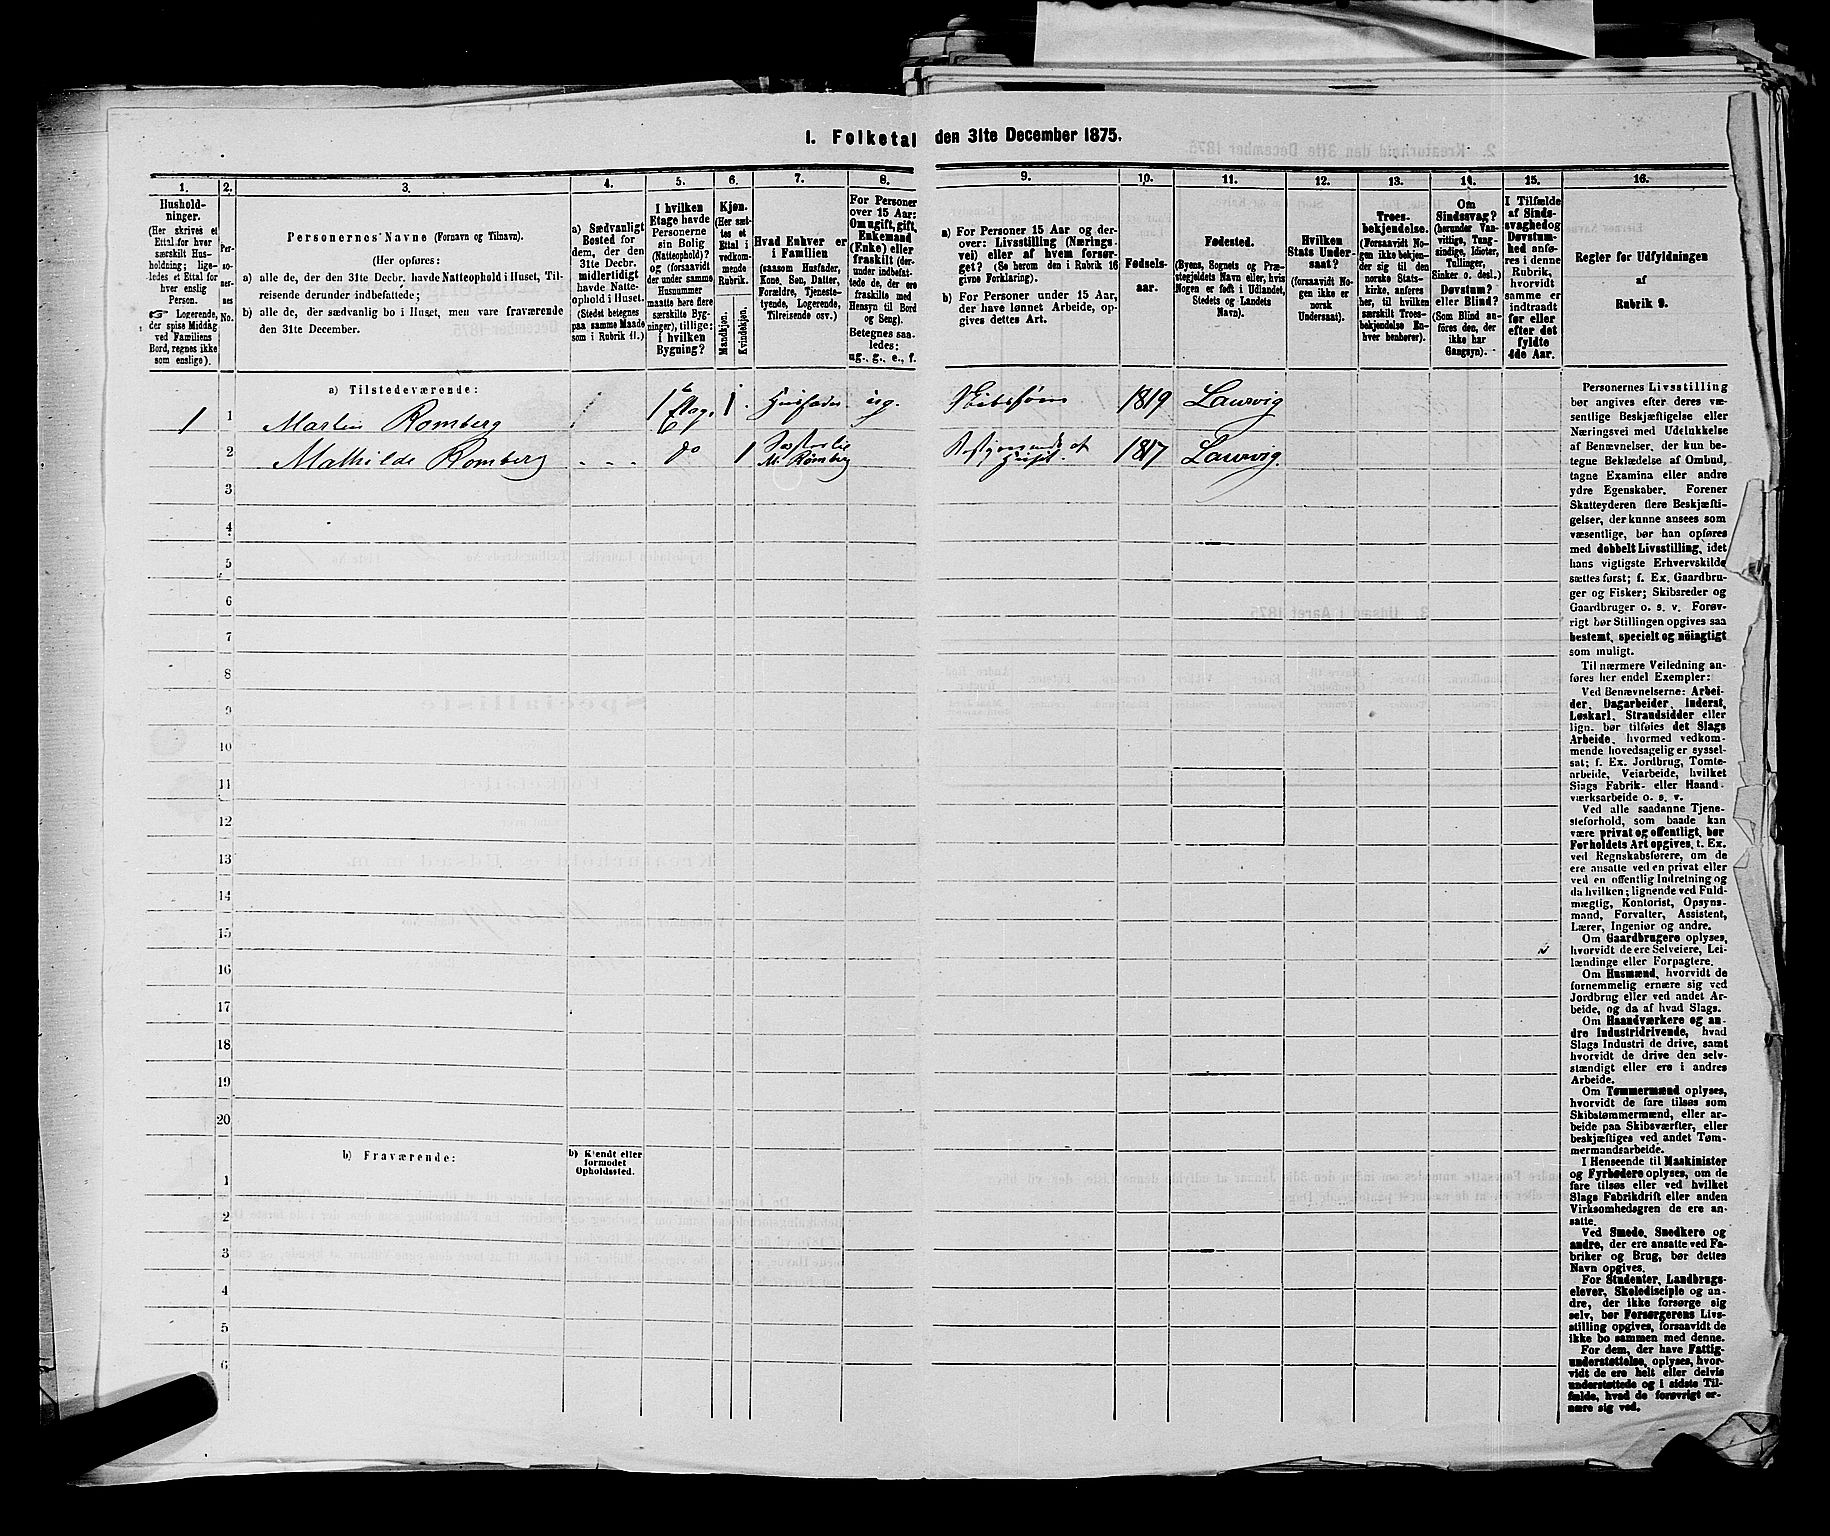 1. Folketal den 31te December 1875.
1. 2. 3. 4. 5. 6. 7. 8. 9. 10. 11. 12. 13. 14. 15. 16.
Hushold-
ninger.
(Her skrives et
Ettal for hver
særskilt Hus-
holdning; lige-
ledes et Ettal for
hver enslig
Person.
☞ Logerende,
der spise Middag
ved Familiens
Bord, regnes ikke
som enslige).
Per-
so-
ner-
nes
No.
Personernes Navne (Fornavn og Tilnavn).
(Her opføres:
a) alle de, der den 31te Decbr. havde Natteophold i Huset, Til-
reisende derunder indbefattede;
b) alle de, der sædvanlig bo i Huset, men vare fraværende
den 31te December.
a) Sædvanligt
Bosted for
dem, der den
31te Decbr.
midlertidigt
havde Natte-
ophold i Huset.
(Stedet betegnes
paa samme Maade
som i Rubrik 11.)
I hvilken
Etage havde
Personerne
sin Bolig
(Natteophold)?
og (forsaavidt
der under samme
Husnummer
maatte høre flere
særskilte Byg-
ninger), tillige:
I hvilken
Bygning?
Kjøn.
(Her sæt-
tes et
Ettal i
vedkom-
mende
Rubrik.
Mandkjøn.
Kvindekjøn.
Hvad Enhver er
i Familien
(saasom Husfader,
Kone, Søn, Datter,
Forældre, Tjeneste-
tyende, Logerende,
Tilreisende osv.)
For Personer
over 15 Aar:
Om ugift, gift,
Enkemand
(Enke) eller
fraskilt (der-
under indbefat-
tede de, der ere
fraskilte med
Hensyn til Bord
og Seng).
Betegnes saa-
ledes:
ug., g., e., f.
a) For Personer 15 Aar og der-
over: Livsstilling (Nærings-
vei) eller af hvem forsør-
get? (Se herom den i Rubrik 16
givne Forklaring).
b) For Personer under 15 Aar,
der have lønnet Arbeide, op-
gives dettes Art.
Fødsels-
aar.
Fødested.
(Byens, Sognets og Præ-
stegjeldets Navn eller, hvis
Nogen er født i Udlandet,
Stedets og Landets
Navn).
Hvilken
Stats Under-
saat?
(forsaavidt No-
gen ikke er
norsk
Undersaat).
Troes-
bekjendelse.
(Forsaavidt No-
gen ikke bekjen-
der sig til den
norske Stats-
kirke, anføres
her, til hvilken
særskilt Troes-
bekjendelse En-
hver henhører).
Om
Sindssvag?
(herunder Van-
vittige, Tung-
sindige, Idioter,
Tullinger,
Sinker o. desl.)
Døvstum?
eller Blind?
(Som Blind an-
føres den, der
ikke har
Gangsyn).
I Tilfælde
af Sinds-
svaghed og
Døvstum-
hed anfø-
res i denne
Rubrik,
hvorvidt
samme er
indtraadt
før eller
efter det
fyldte
4de Aar.
Regler for Udfyldningen
af
Rubrik 9.
a) Tilstedeværende:
1 1 Martin Romberg 1ste Etag. 1 Husfader ug. 1819 Laurvig
2 Mathilde Romberg - - - do 1 M. Romberg 1817 Laurvig.
3
4
5
6
7
8
9
10
11
12
13
14
15
16
17
18
19
20
b) Fraværende:
b) Kjendt eller
formodet
Opholdssted.
1
2
3
4
5
6
Personernes Livsstilling
bør angives efter deres væ-
sentlige Beskjæftigelse eller
Næringsvei med Udelukkelse
af Benævnelser, der kun be-
tegue Beklædelse af Ombud,
tagne Examina eller andre
ydre Egenskaber. Forener
Skatteyderen flere Beskjæfti-
gelser, der kunne ansees som
væsentlige, bør han opføres
med dobbelt Livsstilling, idet
hans vigtigste Erhvervskilde
sættes først; f. Ex. Gaardbru-
ger og Fisker; Skibsreder og
Gaardbruger o. s. v. Forøv-
rigt bør Stillingen opgives saa
bestemt, specielt og nöiagtigt
som muligt.
Til nærmere Veiledning an-
føres her endel Exempler:
Ved Benævnelserne: Arbei-
der, Dagarbeider, Inderst,
Løskarl, Strandsidder eller
lign. bør tilføies det Slags
Arbeide, hvormed vedkom-
mende hovedsagelig er syssel-
sat; f. Ex. Jordbrug, Tomte-
arbeide, Veiarbeide, hvilket
Slags Fabrik- eller Haand-
værksarbeide o. s. v.
Ved alle saadanne Tjene-
steforhold, som baade kan
være privat og offentligt, bør
Forholdets Art opgives, t. Ex.
ved Regnskabsførere, om de
ere ansatte ved en privat eller
ved en offentlig Indretning og
da hvilken; lignende ved Fuld-
mægtig, Kontorist, Opsyns-
mand, Forvalter, Assistent,
Lærer, Ingeniør og andre.
Om Gaardbrugere oplyses,
hvorvidt de ere Selveiere, Lei-
lændinge eller Forpagtere.
Om Husmænd, hvorvidt de
fornemmelig ernære sig ved
Jordbrug eller ved andet Ar-
beide, og da af hvad Slags.
Om Haandværkere og an-
dre Industridrivende, hvad
Slags Industri de drive, samt
hvorvidt de drive den selv-
stændigt eller ere i andres
Arbeide.
Om Tømmermænd oplyses,
hvorvidt de fare tilsøs som
Skibstømmermænd, eller ar-
beide paa Skibsværfter, eller
beskjæftiges ved andet Tøm-
mermandsarbeide.
I Henseende til Maskinister
og Fyrbødere oplyses, om de
fare tilsøs eller ved hvilket
Slags Fabrikdrift eller anden
Virksomhedsgren de ere an-
satte.
Ved Smede, Snedkere og
andre, der ere ansatte ved Fa-
briker og Brug, bør dettes
Navn opgives.
For Studenter, Landbrugs-
elever, Skoledisciple og an-
dre, der ikke forsørge sig
selv, bør Forsørgerens Livs-
stilling opgives, forsaavidt de
ikke bo sammen med denne.
For dem, der have Fattig-
understøttelse, oplyses, hvor-
vidt de ere helt eller delvis
understøttede og i sidste Til-
fælde, hvad de forøvrigt er-
nære sig ved.